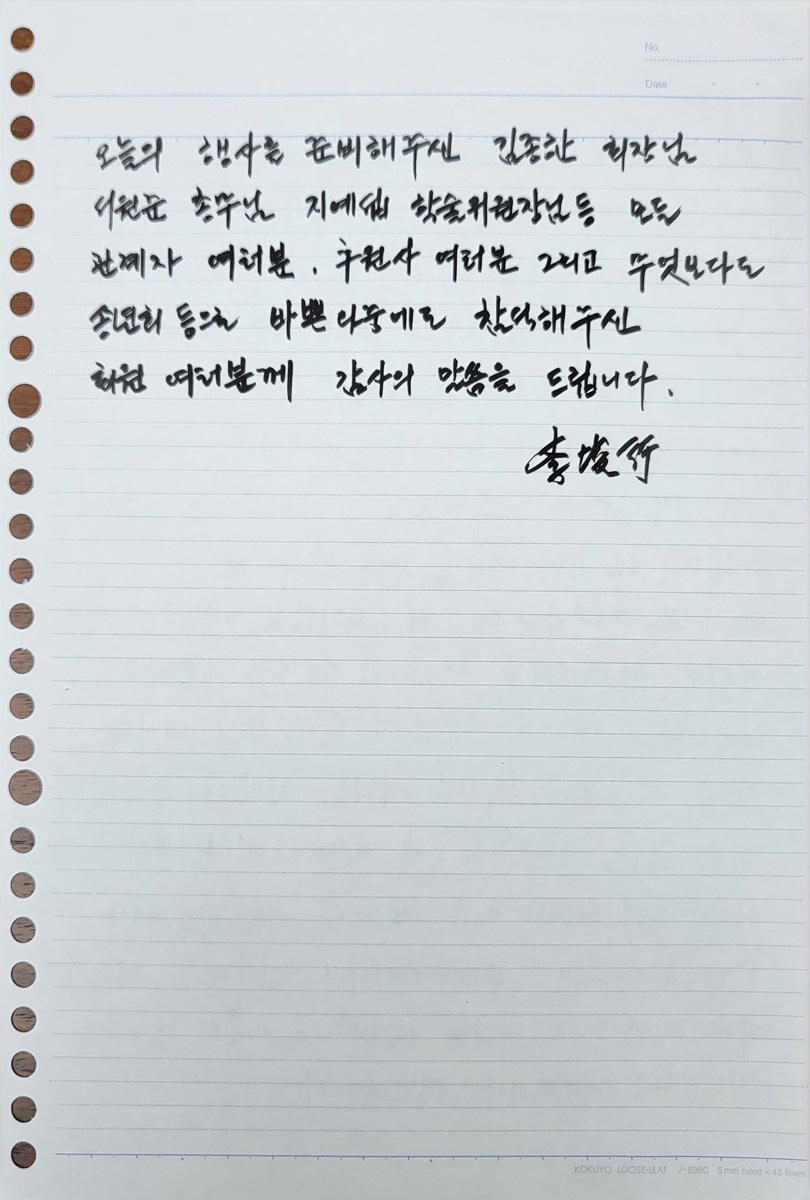 No.
Date
오늘의 행사를 준비해주신 김종한 회장님
서원준 총무님 지예섭 학술위원장님등 모든
관계자 여러분, 후원사 여러분 그리고 무엇보다도
송년회 등으로 바쁜 와중에도 참석해주신
회원 여러분께 감사의 말씀을 드립니다.
李埈行
KOKUYO LOOSE-LEAF ノ-836C 5 mm ruled × 43 lines